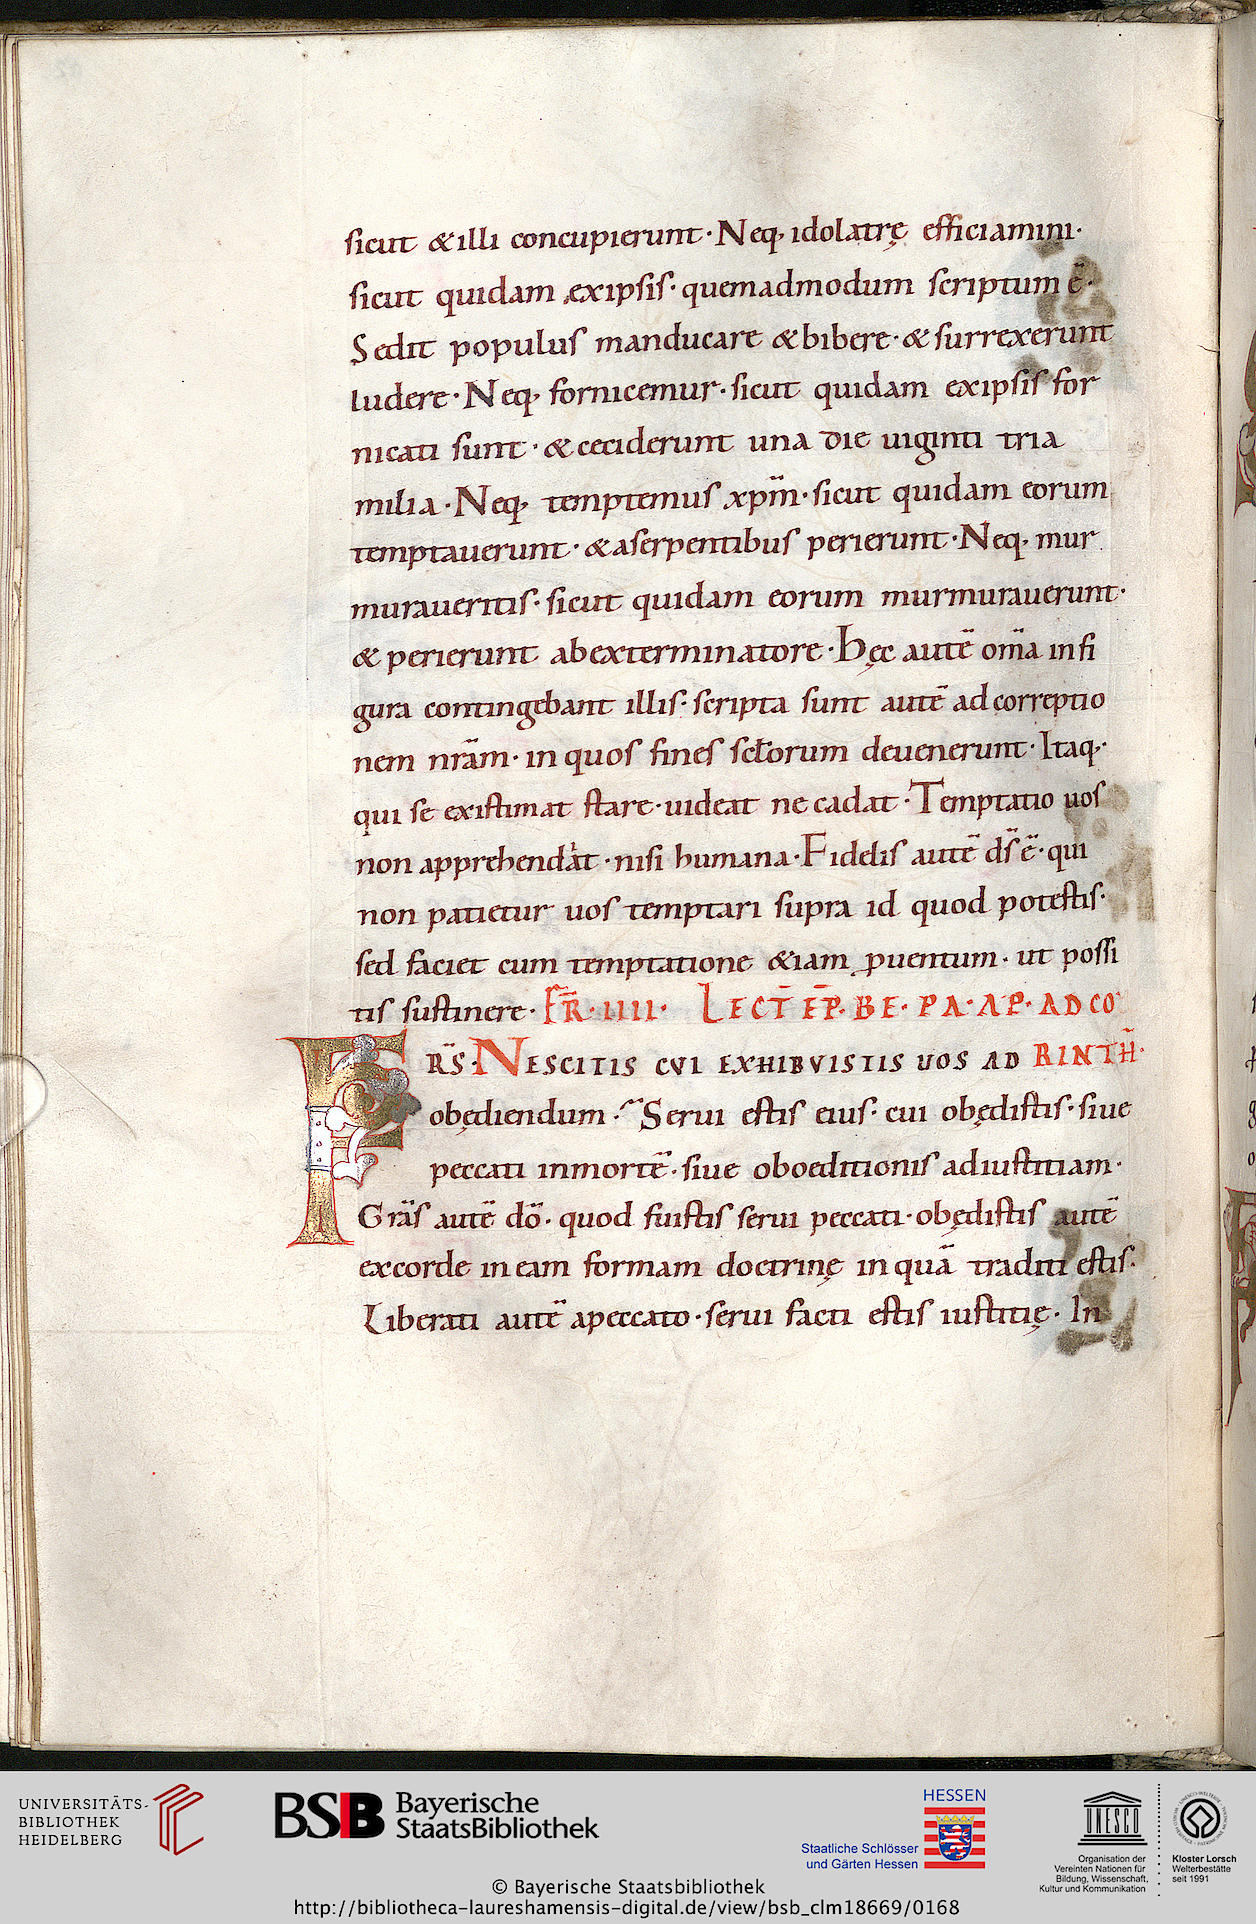 sicut & illi concupierunt · Neq; idolatrę efficiamini ·
sicut quidam ex ipsis · quemadmodum scriptum ē ·
Sedit populus manducare & bibere · & surrexerunt
ludere · Neq; fornicemur · sicut quidam ex ipsis for
nicati sunt · & ceciderunt una die uiginti tria
milia · Neq; temptemus xp̄m · sicut quidam eorum
temptauerunt · & a serpentibus perierunt · Neq; mur
muraueritis · sicut quidam eorum murmurauerunt ·
& perierunt ab exterminatore · Hęc autē om̄a in fi
gura contingebant illis · scripta sunt autē ad correptio
nem nrām · in quos fines sc̄lorum deuenerunt · Itaq; ·
qui se existimat stare · uideat ne cadat · Temptatio uos
non apprehendat · nisi humana · Fidelis autē d̄s ē · qui
non patietur uos temptari supra id quod potestis ·
sed faciet cum temptatione &iam ꝓuentum · ut possi
tis sustinere · FR̄ · IIII · LECT̄ EP̄ · BE · PA · AP · AD CO
RINTH̄ ·
FRS̄ · NESCITIS CVI EXHIBVISTIS VOS AD
obędiendum · Serui estis eius · cui obędistis · siue
peccati in mortē · siue oboeditionis ad iustitiam ·
Grās autē dō · quod fuistis serui peccati · obędistis autē
ex corde in eam formam doctrinę in quā traditi estis ·
Liberati autē a peccato · serui facti estis iustitię · In
UNIVERSITÄTS-
BIBLIOTHEK
HEIDELBERG
BSB Bayerische
StaatsBibliothek
HESSEN
Staatliche Schlösser
und Gärten Hessen
UNESCO
Organisation der
Vereinten Nationen für
Bildung, Wissenschaft,
Kultur und Kommunikation
Kloster Lorsch
Welterbestätte
seit 1991
© Bayerische Staatsbibliothek
http://bibliotheca-laureshamensis-digital.de/view/bsb_clm18669/0168